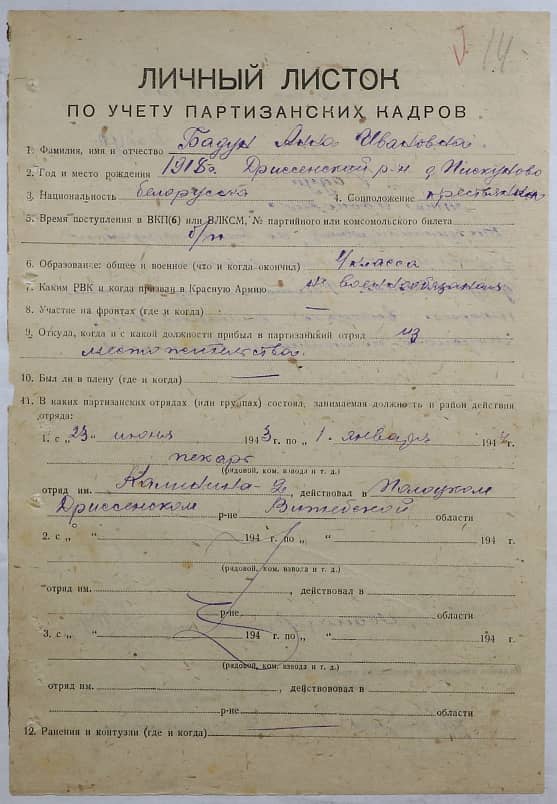 14
ЛИЧНЫЙ ЛИСТОК
ПО УЧЕТУ ПАРТИЗАНСКИХ КАДРОВ
1. Фамилия, имя и отчество Бадун Анна Ивановна
2. Год и место рождения 1918 г. Дриссенский р-н д. Пискуново
3. Национальность белорусска 4. Соцположение крестьянка
5. Время поступления в ВКП(б) или ВЛКСМ, № партийного или комсомольского билета
б/п
6. Образование: общее и военное (что и когда окончил) 4 класса
7. Каким РВК и когда призван в Красную Армию не военнообязаная
8. Участие на фронтах (где и когда) —
9. Откуда, когда и с какой должности прибыл в партизанский отряд из
места жительства
10. Был ли в плену (где и когда) —
11. В каких партизанских отрядах (или группах) состоял, занимаемая должность и район действия
отряда:
1. с „23“ июня 1943 г. по „1. января 1944 г.
пекарь
(рядовой, ком. взвода и т. д.)
отряд им. Калинина-2, действовал в Полоцком
Дриссенском р-не Витебской области
2. с „ “ 194 г. по „ “ 194 г.
(рядовой, ком. взвода и т. д.)
отряд им. , действовал в
р-не области
3. с „ “ 194 г. по „ “ 194 г.
(рядовой, ком. взвода и т. д.)
отряд им. , действововал в
р-не области
12. Ранения и контузии (где и когда)